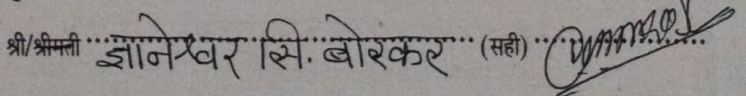 श्री/श्रीमती ज्ञानेश्वर सि. बोरकर (सही)